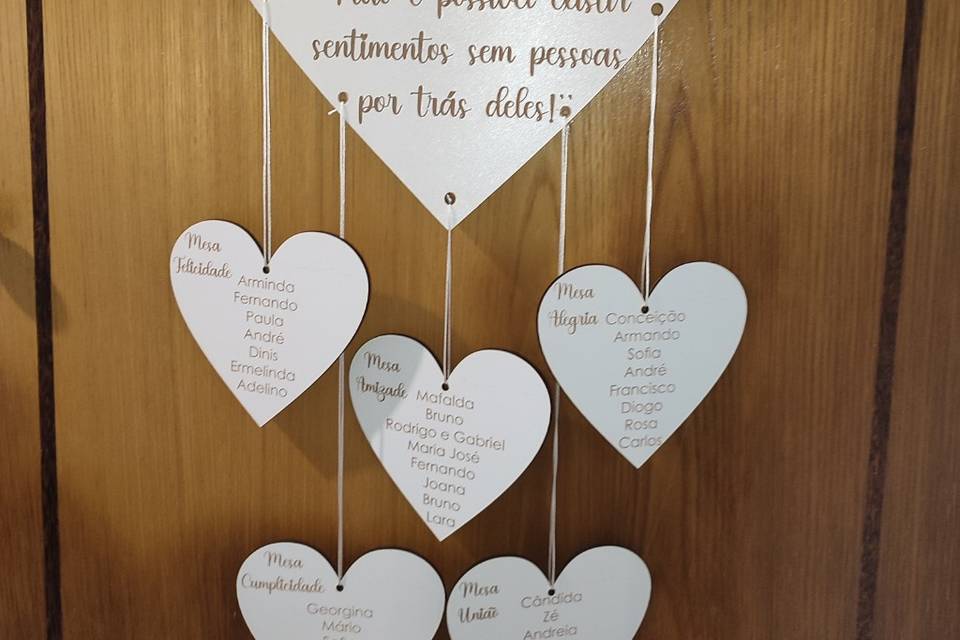 sentimentos sem pessoas
por trás deles!"
Mesa
Felicidade
Arminda
Fernando
Paula
André
Dinis
Ermelinda
Adelino
Mesa
Amizade
Mafalda
Bruno
Rodrigo e Gabriel
Maria José
Fernando
Joana
Bruno
Lara
Mesa
Alegria
Conceição
Armando
Sofia
André
Francisco
Diogo
Rosa
Carlos
Mesa
Cumplicidade
Georgina
Mário
Mesa
União
Cândida
Zé
Andreia